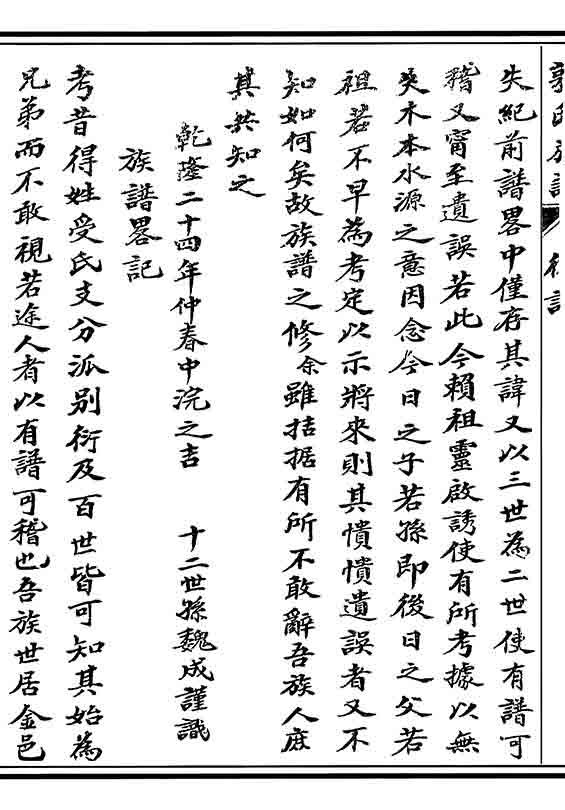 郭氏族譜
失紀前譜畧中僅存其諱又以三世為二世使有譜可
稽又甯至遺誤若此今賴祖靈啟誘使有所考據以無
爽木本水源之意因念今日之子若孫即後日之父若
祖若不早為考定以示將來則其憒憒遺誤者又不
知如何矣故族譜之修余雖拮据有所不敢辭吾族人庶
其共知之
乾隆二十四年仲春中浣之吉 十二世孫魏成謹識
族譜畧記
考昔得姓受氏支分派別衍及百世皆可知其始為
兄弟而不敢視若途人者以有譜可稽也吾族世居金邑